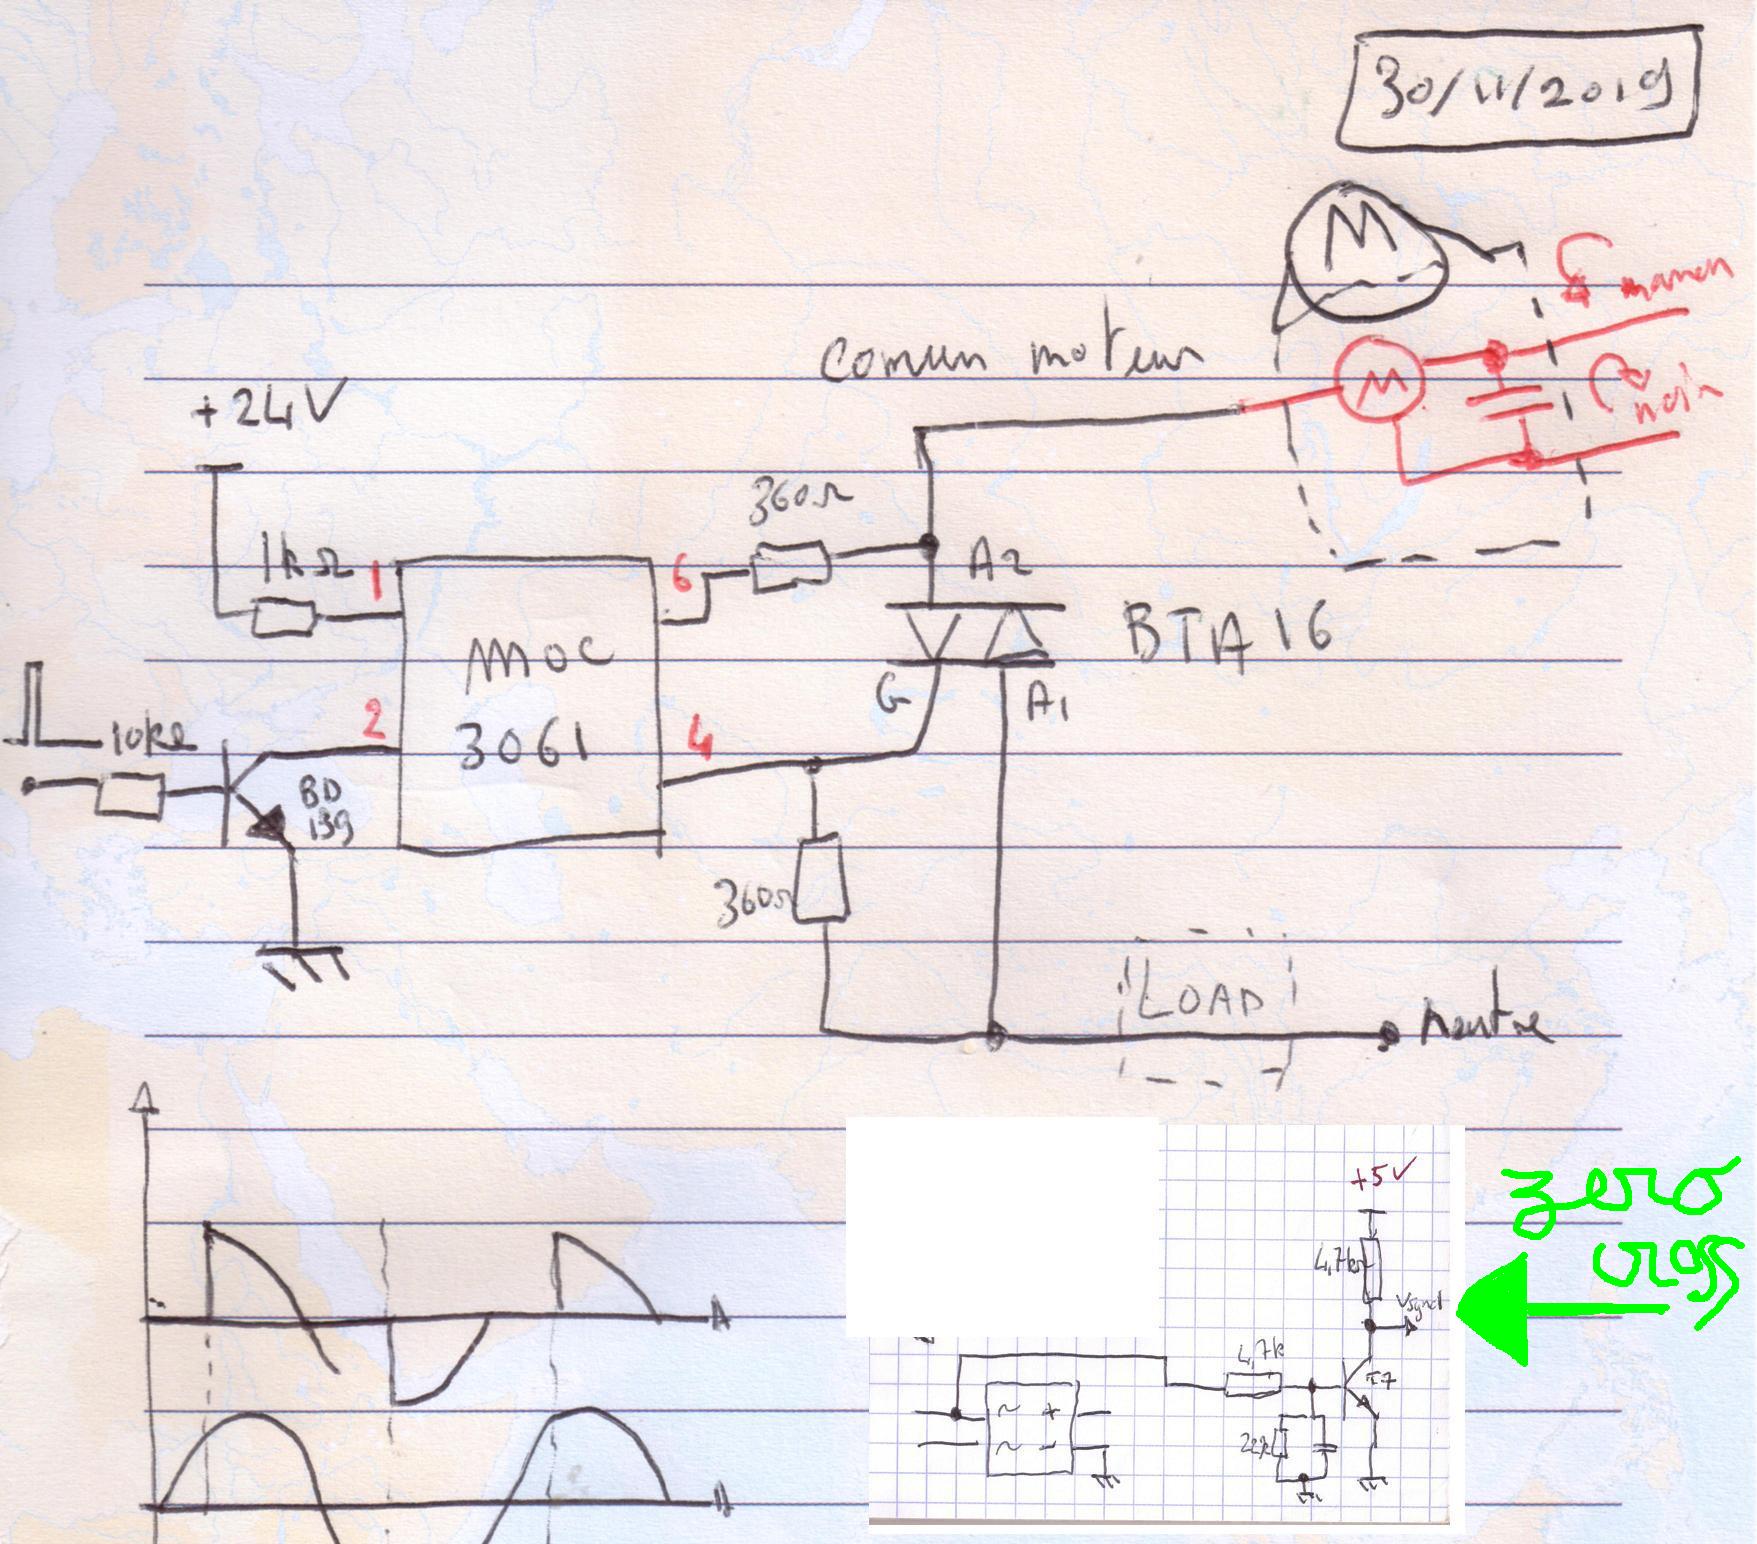 30/11/2019
M
marron
comun moteur
M
noir
+24V
360Ω
1kΩ
1
6
A2
MOC
3061
BTA16
G
A1
2
4
10kΩ
BD
139
360Ω
LOAD
neutre
+5V
zero
cross
4,7kΩ
Vsynch
4,7k
T7
~ +
~ -
22k